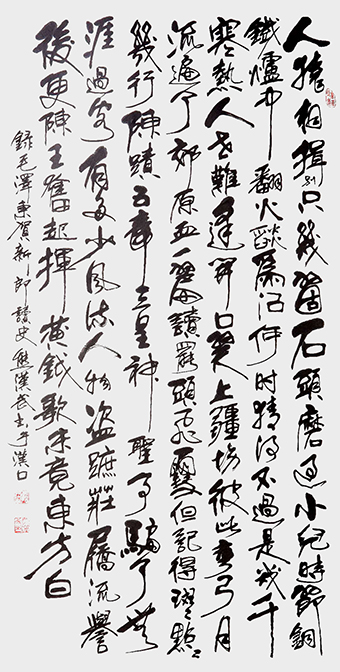 人猿相揖别只幾箇石頭磨過小兒時節銅
鐵爐中翻火燄為問何時猜得不過是幾千
寒熱人世難逢開口笑上疆場彼此彎弓月
流遍了郊原血一篇讀罷頭飛雪但記得斑斑點點
幾行陳蹟五帝三皇神聖事騙了無
涯過客有多少風流人物盜蹠莊屩流譽
後更陳王奮起揮黃鉞歌未竟東方白
錄毛澤東賀新郎讀史熊漢武壬午漢口